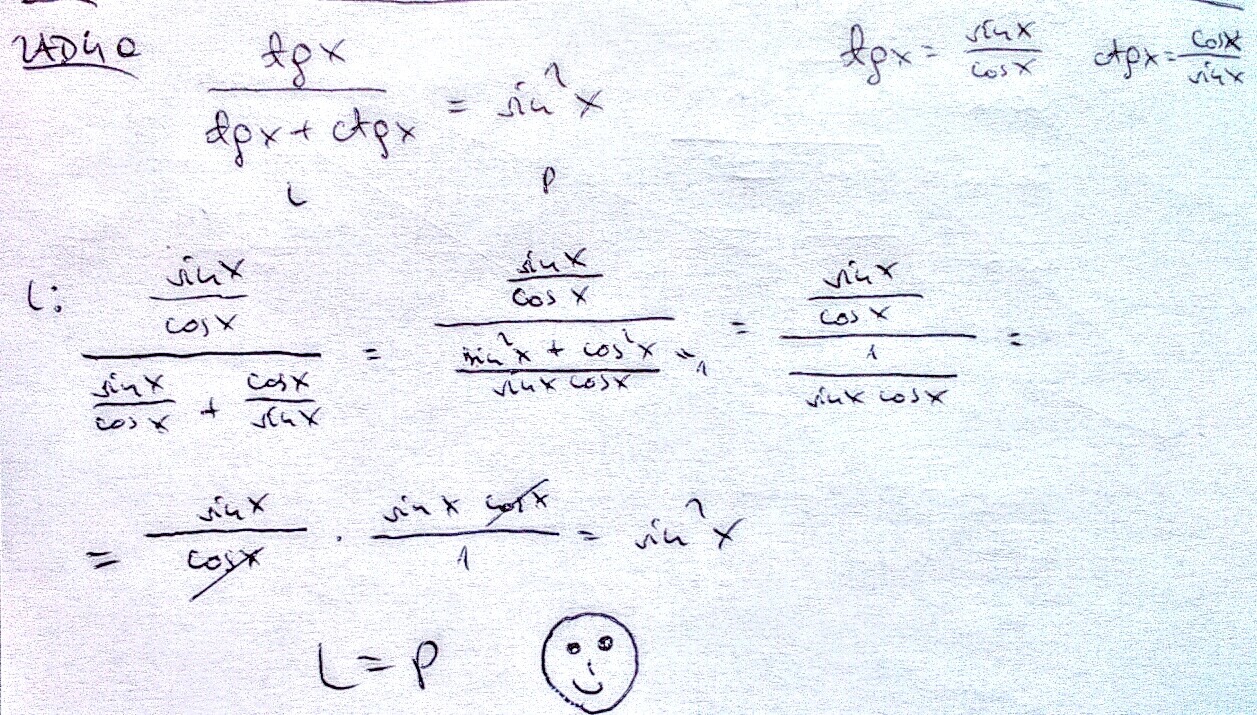 ZAD40 tgx / (tgx + ctgx) = sin²x tgx = sinx/cosx ctgx = cosx/sinx
L P
L: (sinx/cosx) / (sinx/cosx + cosx/sinx) = (sinx/cosx) / ((sin²x + cos²x)/(sinx cosx)) = (sinx/cosx) / (1/(sinx cosx)) =
= sinx/cosx · (sinx cosx)/1 = sin²x
L = P